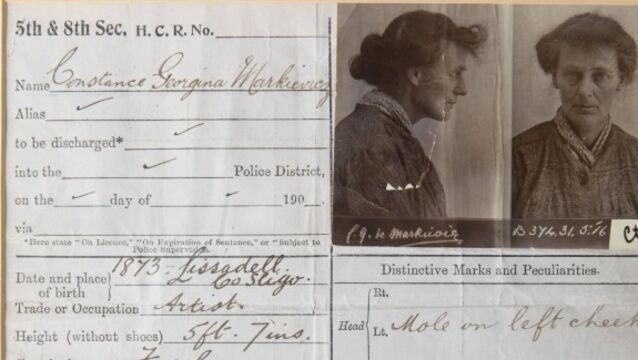 5th & 8th Sec. H. C. R. No.
Name Constance Georgina Markievicz
Alias ✓
to be discharged* ✓
into the ✓ Police District,
on the ✓ day of ✓ 190 .
via
*Here state "On Licence," "On Expiration of Sentence," or "Subject to
Police Supervision.
Date and place of birth } 1873. Lissadell, Co Sligo.
Trade or Occupation Artist.
Height (without shoes) 5ft. 7ins.
C. G. de Markievicz
B 374. 31. 5. 16
Distinctive Marks and Peculiarities.
Head { Rt.
Lt. Mole on left cheek